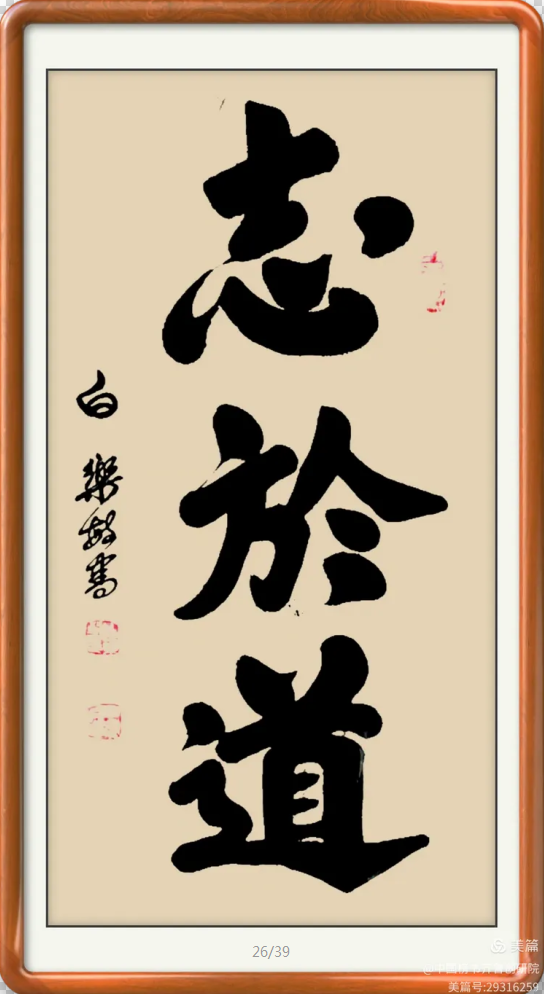 志於道
白
26/39
美篇
美篇号:29316259